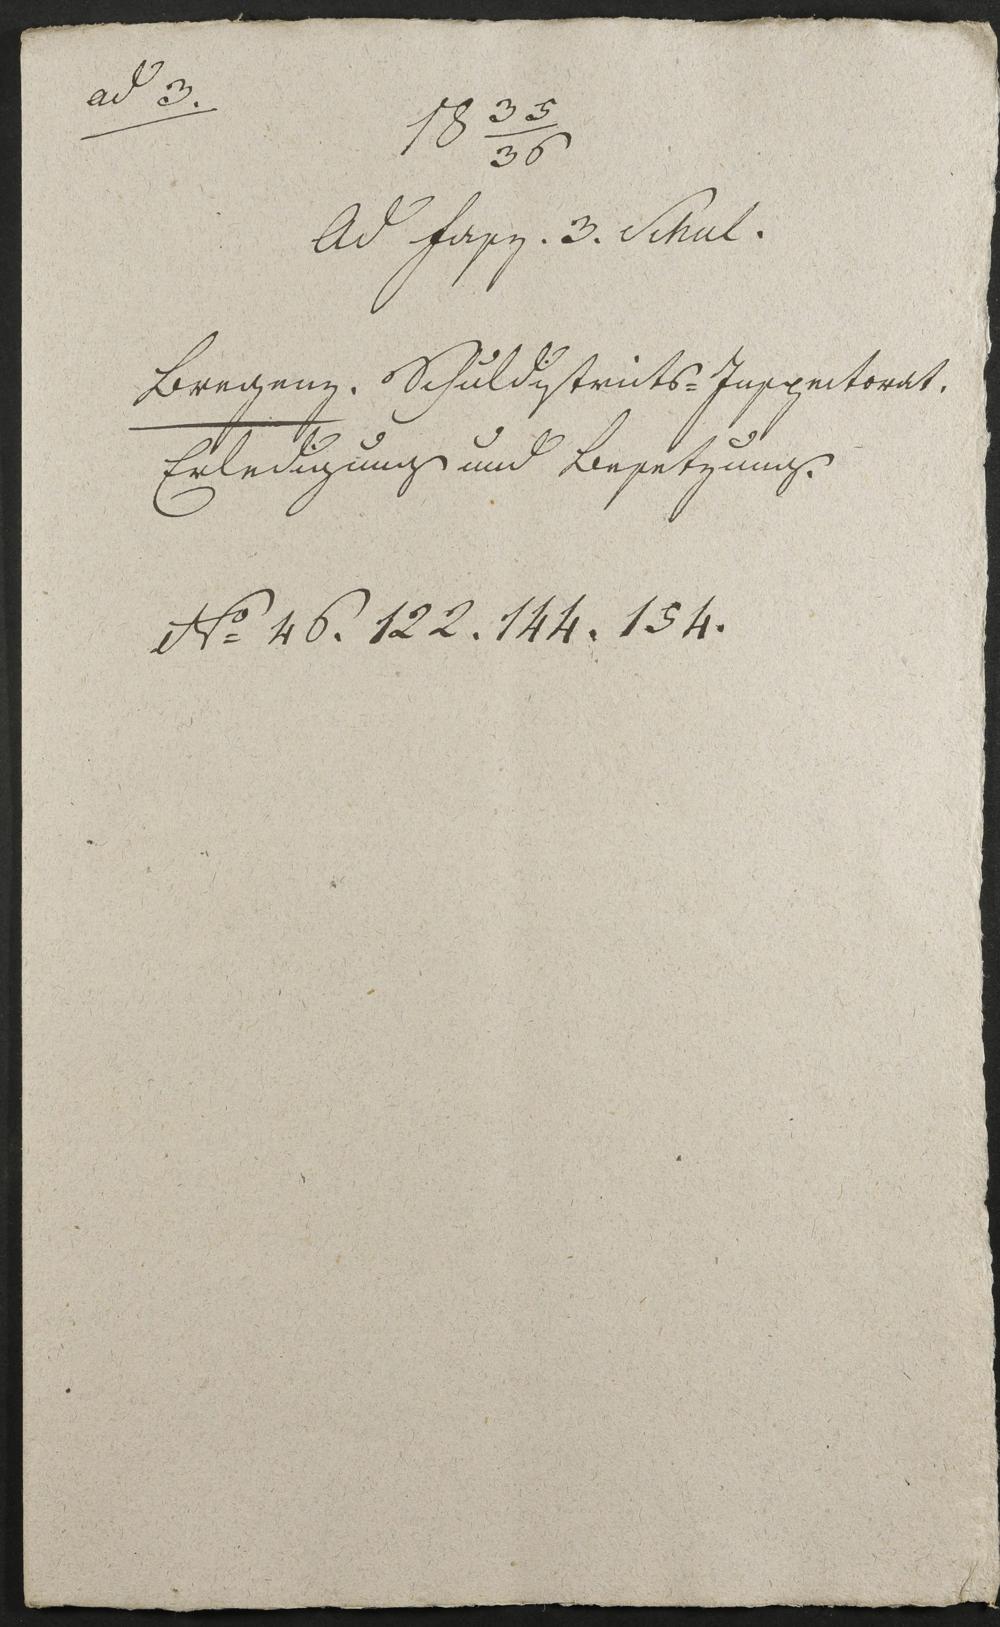 ad 3.
18 35/36
Ad fasz. 3. Schul.
Bregenz. Schuldistricts-Inspectorat.
Erledigung und Besetzung.
No 46. 122. 144. 154.